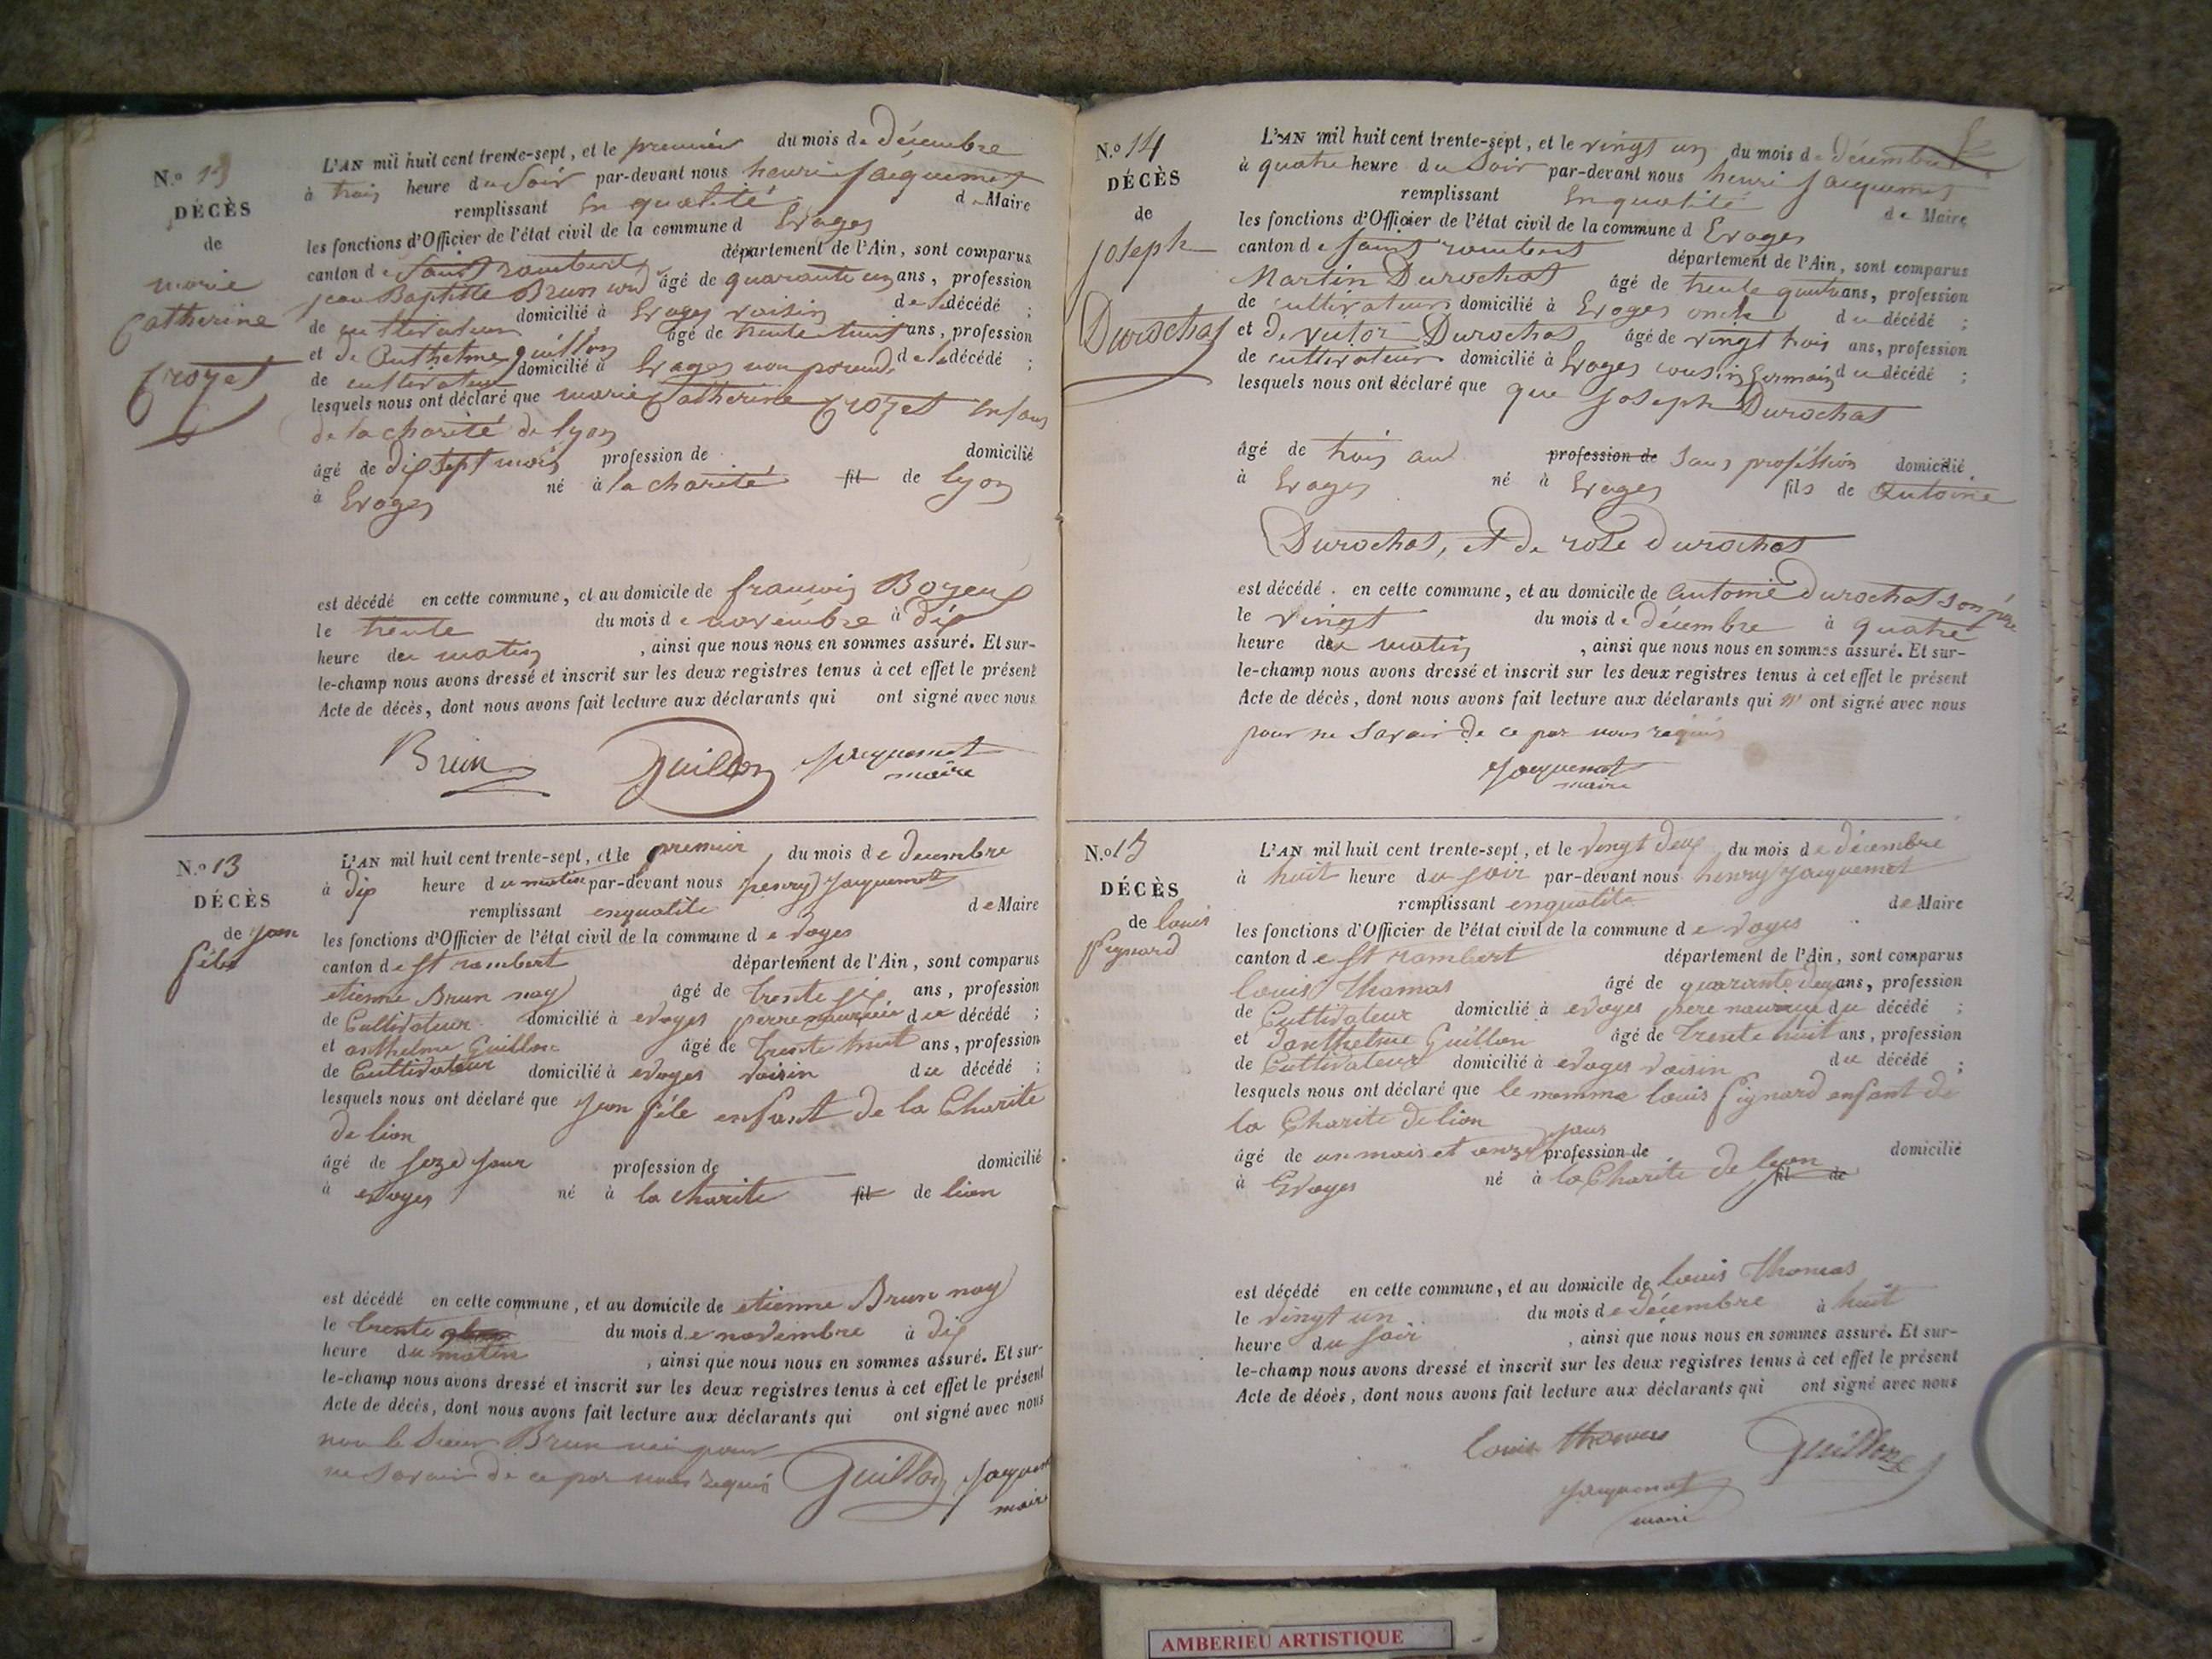 N.o 13
DÉCÈS
de
marie
Catherine
Crozet
L'AN mil huit cent trente-sept, et le premier du mois de Décembre
à trois heure du Soir par-devant nous henri Jacquemet
remplissant En qualité de Maire
les fonctions d'Officier de l'état civil de la commune d Evoges
canton de Saint rambert département de l'Ain, sont comparus
jean Baptiste Brun âgé de quarante un ans, profession
de cultivateur domicilié à Evoges voisin de la décédé ;
et de Anthelme guillon âgé de trente huit ans, profession
de cultivateur domicilié à Evoges non parend de la décédé ;
lesquels nous ont déclaré que marie Catherine Crozet enfans
de la charité de lyon
âgé de dix sept mois profession de domicilié
à Evoges né à la charité fil de lyon
est décédé en cette commune, et au domicile de francois Boyeux
le trente du mois de novembre à dix
heure du matin , ainsi que nous nous en sommes assuré. Et sur-
le-champ nous avons dressé et inscrit sur les deux registres tenus à cet effet le présent
Acte de décès, dont nous avons fait lecture aux déclarants qui ont signé avec nous
Brun Guillon Jacquemet
maire
N.o 13
DÉCÈS
de jean
féle
L'AN mil huit cent trente-sept, et le premier du mois de decembre
à dix heure du matin par-devant nous henry Jacquemet
remplissant enqualite de Maire
les fonctions d'Officier de l'état civil de la commune d evoges
canton de st rambert département de l'Ain, sont comparus
etienne Brun noy âgé de trente six ans, profession
de Cultivateur domicilié à evoges perre nouricié du décédé ;
et anthelme Guillon âgé de trente huit ans, profession
de Cultivateur domicilié à evoges voisin du décédé ;
lesquels nous ont déclaré que jean féle enfant de la Charite
de lion
âgé de seze jour profession de domicilié
à evoges né à la charite fil de lion
est décédé en cette commune, et au domicile de etienne Brun noy
le trente du mois de novembre à dix
heure du matin , ainsi que nous nous en sommes assuré. Et sur-
le-champ nous avons dressé et inscrit sur les deux registres tenus à cet effet le présent
Acte de décès, dont nous avons fait lecture aux déclarants qui ont signé avec nous
non le sieur Brun pour
ne savoir de ce par nous requis Guillon Jacquemet
maire
N.o 14
DÉCÈS
de
joseph
Durochat
L'AN mil huit cent trente-sept, et le vingt un du mois de décembre
à quatre heure du Soir par-devant nous henri Jacquemet
remplissant En qualité de Maire
les fonctions d'Officier de l'état civil de la commune d Evoges
canton de Saint rambert département de l'Ain, sont comparus
Martin Durochat âgé de trente quatre ans, profession
de cultivateur domicilié à Evoges oncle du décédé ;
et de victor Durochat âgé de vingt trois ans, profession
de cultivateur domicilié à Evoges cousin Germain du décédé ;
lesquels nous ont déclaré que que joseph Durochat
âgé de trois ans profession de Sans profession domicilié
à Evoges né à Evoges fils de Antoine
Durochat, et de rose Durochat
est décédé en cette commune, et au domicile de antoine Durochat son père
le vingt du mois de Décembre à quatre
heure du matin , ainsi que nous nous en sommes assuré. Et sur-
le-champ nous avons dressé et inscrit sur les deux registres tenus à cet effet le présent
Acte de décès, dont nous avons fait lecture aux déclarants qui n' ont signé avec nous
pour ne Savoir de ce par nous requis
Jacquemet
maire
N.o 15
DÉCÈS
de louis
Pignard
L'AN mil huit cent trente-sept, et le vingt deux du mois de décembre
à huit heure du soir par-devant nous henry Jacquemet
remplissant enqualite de Maire
les fonctions d'Officier de l'état civil de la commune d evoges
canton de st rambert département de l'Ain, sont comparus
louis Thomas âgé de quarante deux ans, profession
de Cultivateur domicilié à evoges pere nourricie du décédé ;
et danthelme Guillon âgé de trente huit ans, profession
de Cultivateur domicilié à evoges voisin du décédé ;
lesquels nous ont déclaré que le nomme louis Pignard enfant de
la Charite de lion
âgé de un mois et onze jour profession de domicilié
à Evoges né à la Charite de lyon fil de
est décédé en cette commune, et au domicile de louis Thomas
le vingt un du mois de décembre à huit
heure du soir , ainsi que nous nous en sommes assuré. Et sur-
le-champ nous avons dressé et inscrit sur les deux registres tenus à cet effet le présent
Acte de décès, dont nous avons fait lecture aux déclarants qui ont signé avec nous
louis thomas Guillon
Jacquemet
maire
AMBERIEU ARTISTIQUE